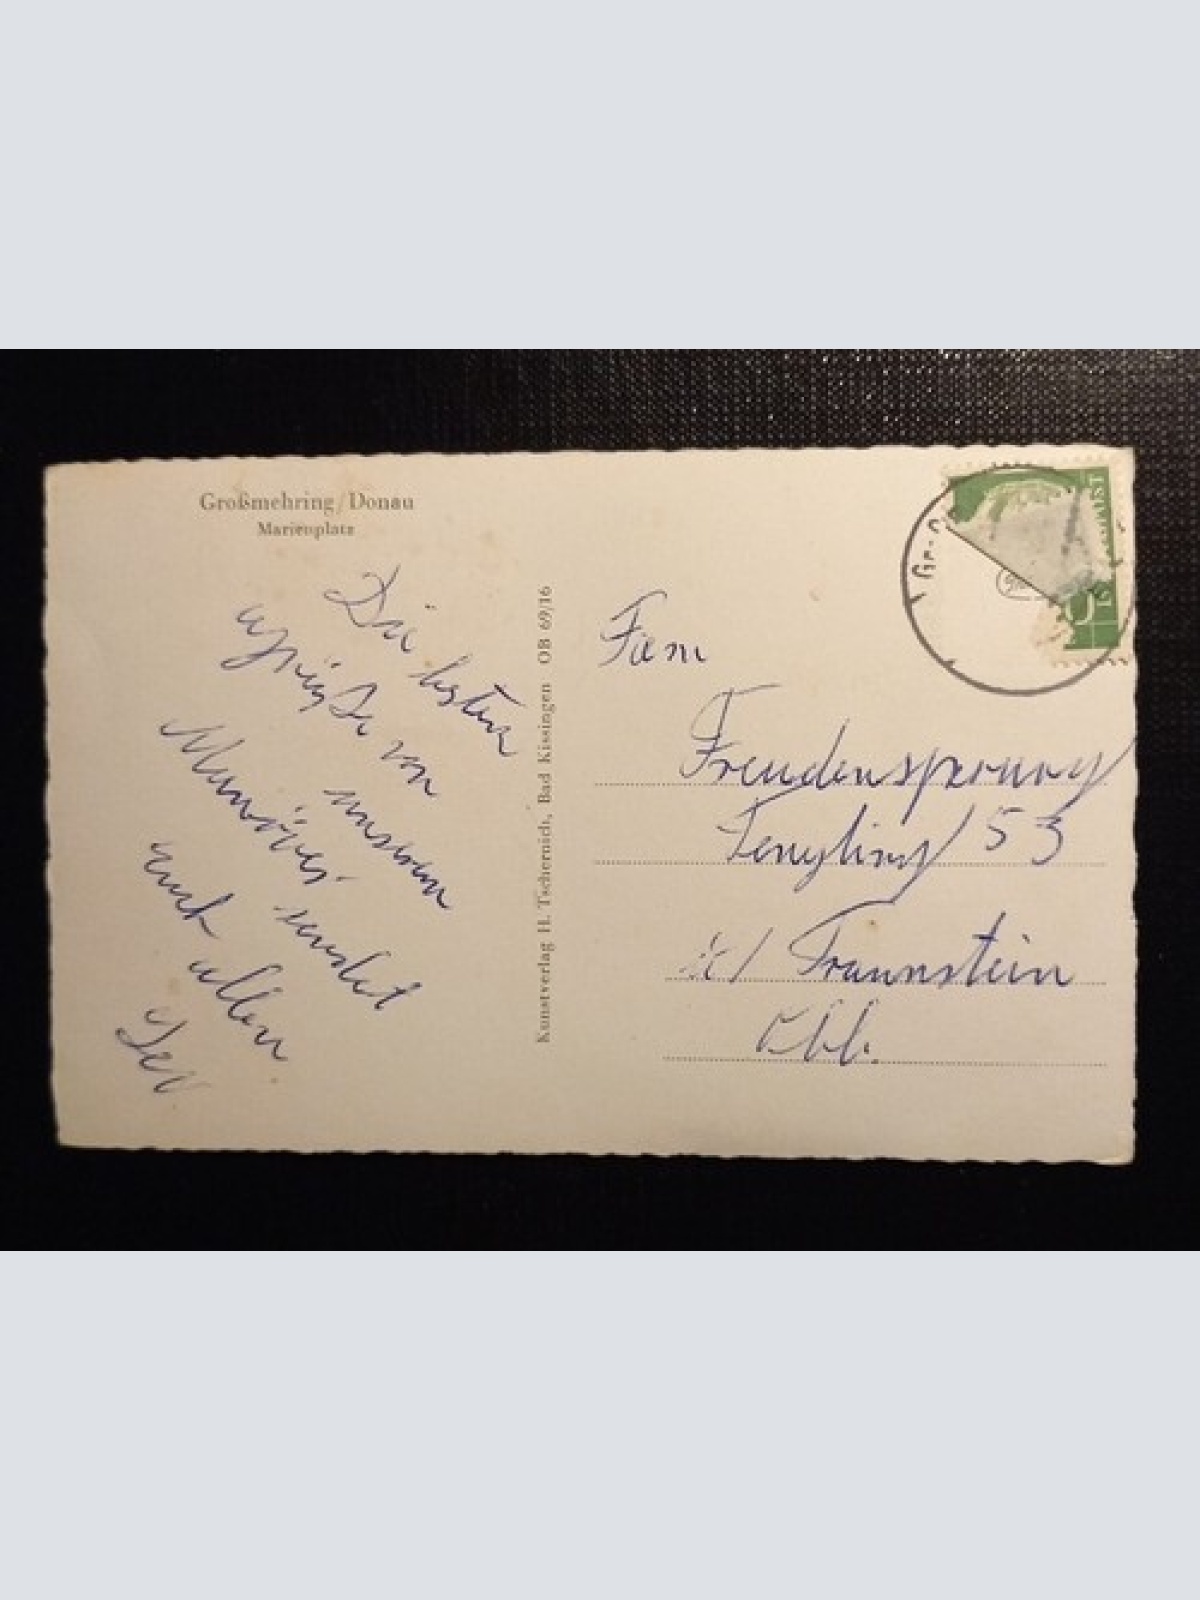 Großmehring/Donau
Marienplatz
Die besten
Grüße von
unserem
Manöver
sendet
euch allen
Kunstverlag H. Tschernich, Bad Kissingen OB 69/16
Fam
Freudensprung
Tengling 53
Traunstein
Obb.
POST